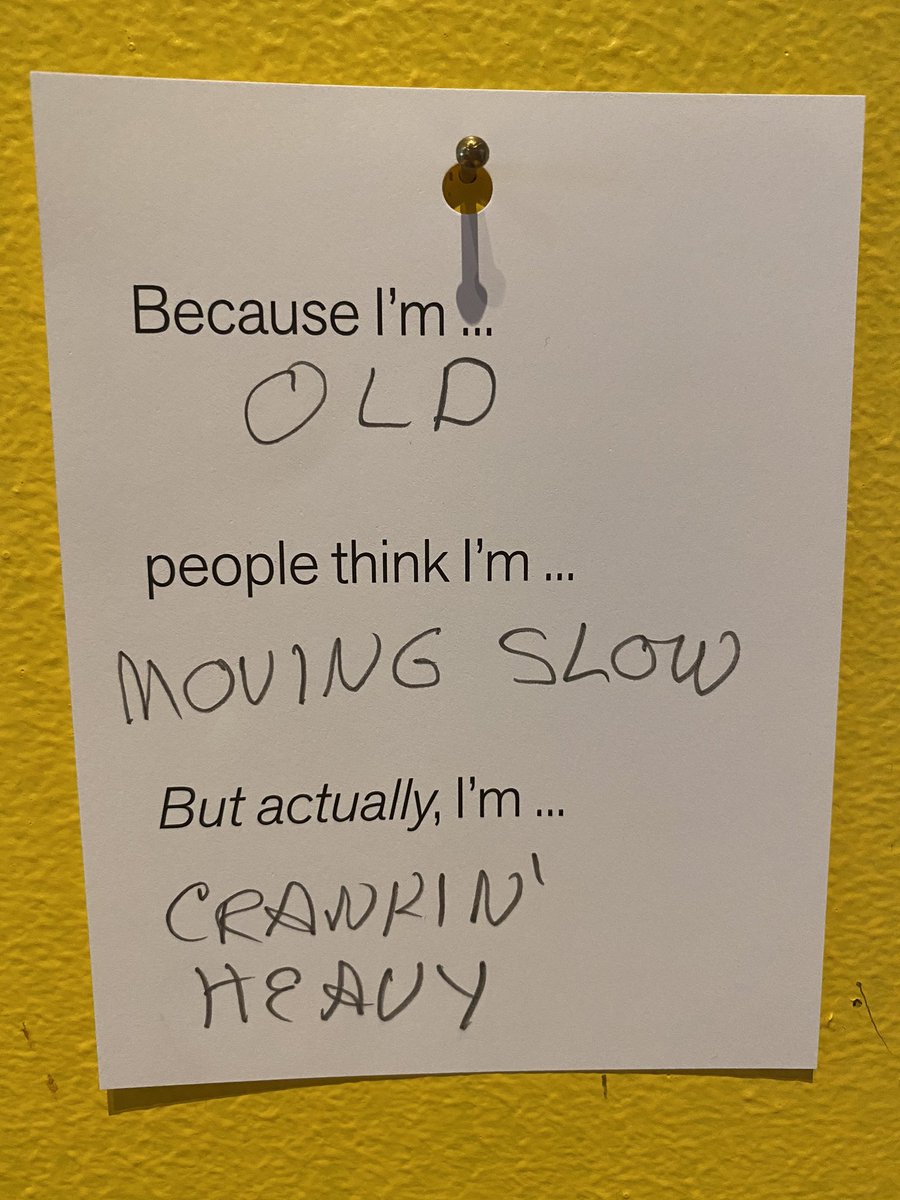 Because I'm ...
OLD
people think I'm ...
MOVING SLOW
But actually, I'm ...
CRANKIN'
HEAVY